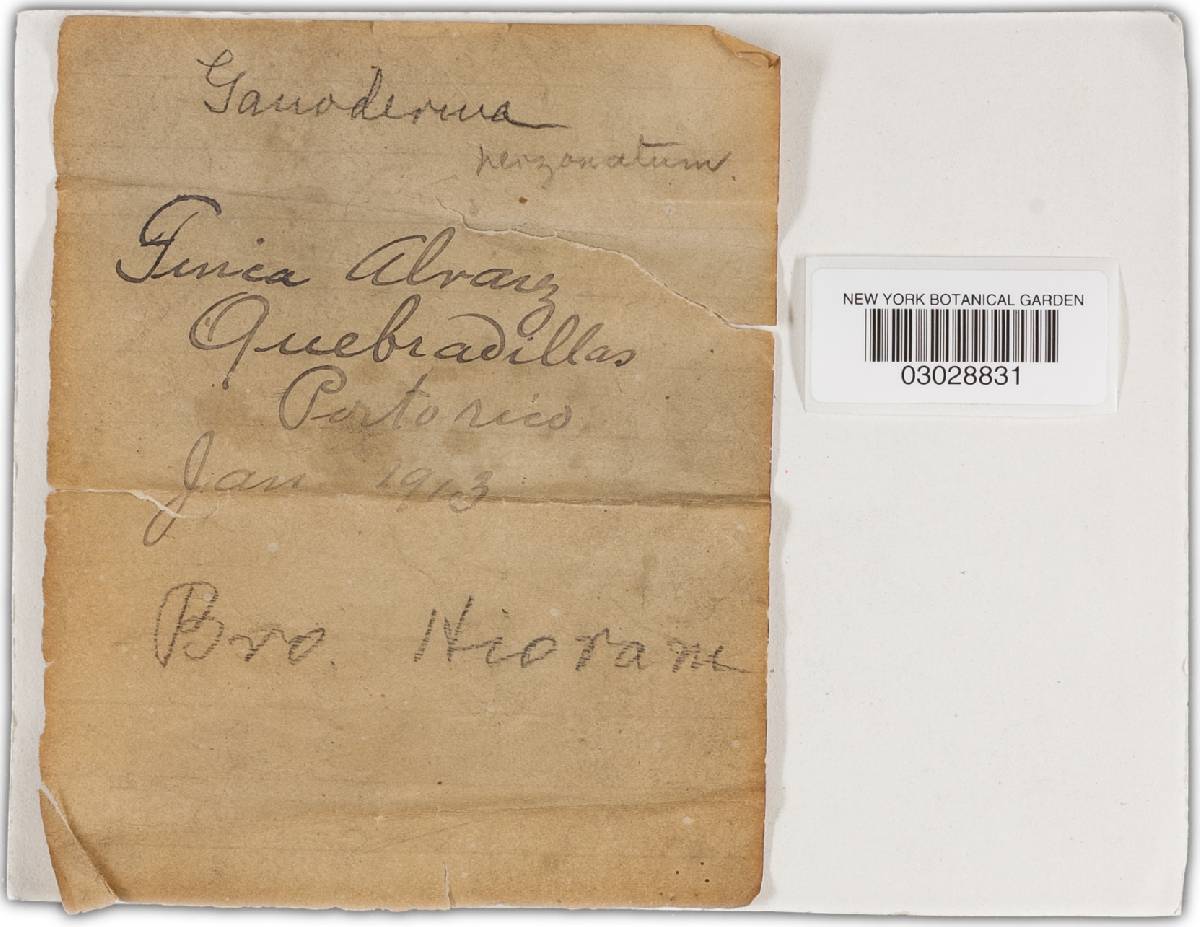 Ganoderma
perzonatum.
Finca Alvarez
Quebradillas
Porto rico
Jan 1913
Bro. Hioram
NEW YORK BOTANICAL GARDEN
03028831